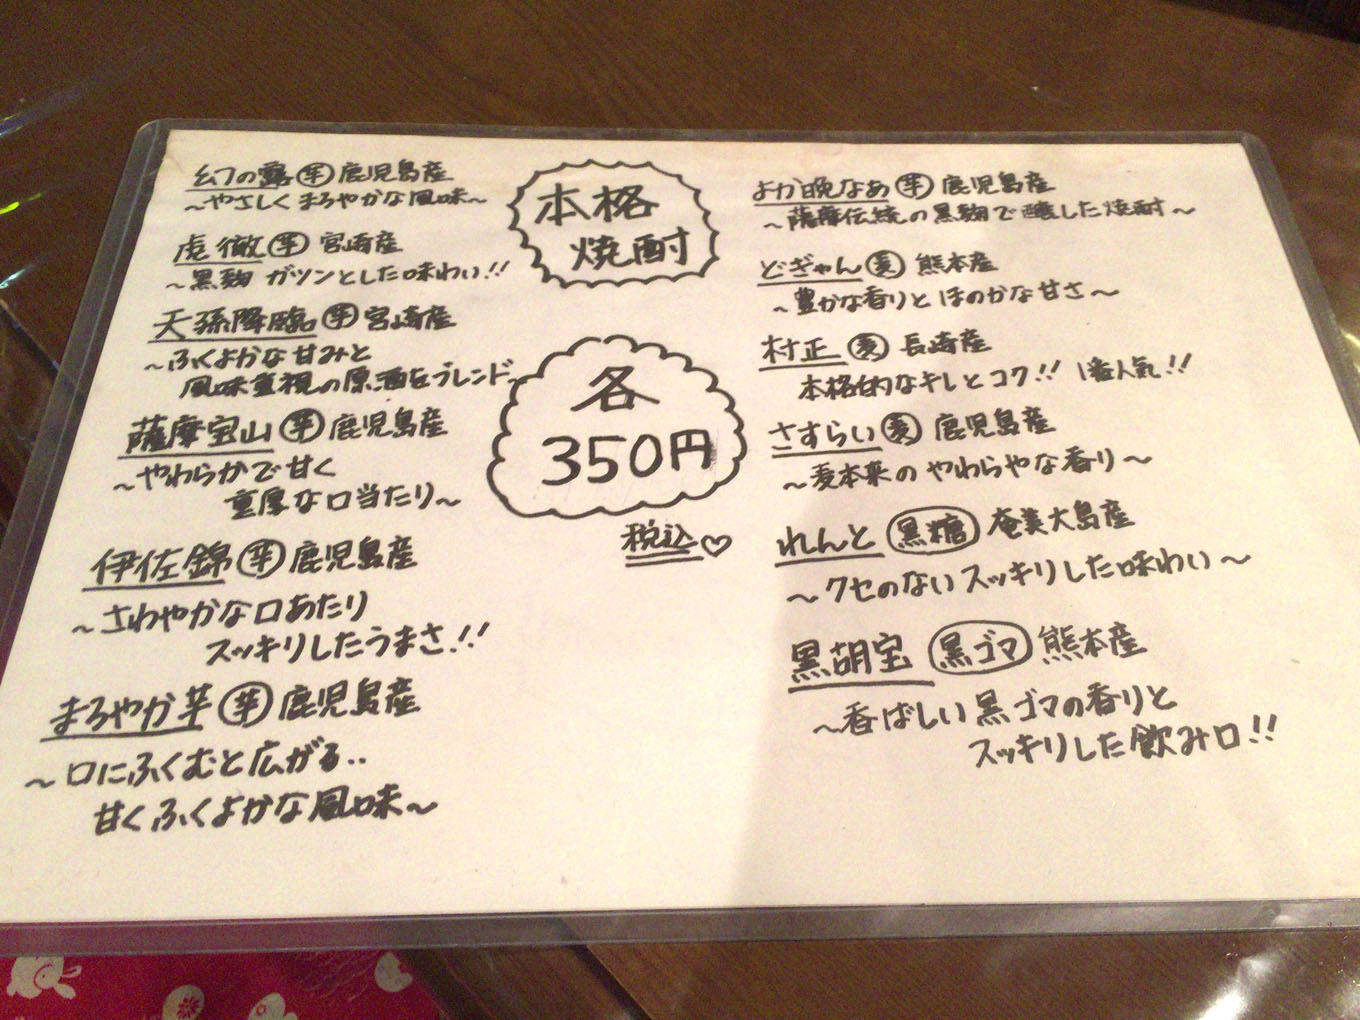 幻の露 芋 鹿児島産
～やさしくまろやかな風味～
虎徹 芋 宮崎産
～黒麹 ガツンとした味わい!!
天孫降臨 芋 宮崎産
～ふくよかな甘みと
風味重視の原酒をブレンド～
薩摩宝山 芋 鹿児島産
～やわらかで甘く
重厚な口当たり～
伊佐錦 芋 鹿児島産
～さわやかな口あたり
スッキリしたうまさ!!
まろやか芋 芋 鹿児島産
～口にふくむと広がる..
甘くふくよかな風味～
本格
焼酎
各
350円
税込♡
よか晩なあ 芋 鹿児島産
～薩摩伝統の黒麹で醸した焼酎～
どぎゃん 麦 熊本産
～豊かな香りとほのかな甘さ～
村正 麦 長崎産
本格的なキレとコク!! 1番人気!!
さすらい 麦 鹿児島産
～麦本来のやわらやな香り～
れんと 黒糖 奄美大島産
～クセのないスッキリした味わい～
黒胡宝 黒ゴマ 熊本産
～香ばしい黒ゴマの香りと
スッキリした飲み口!!